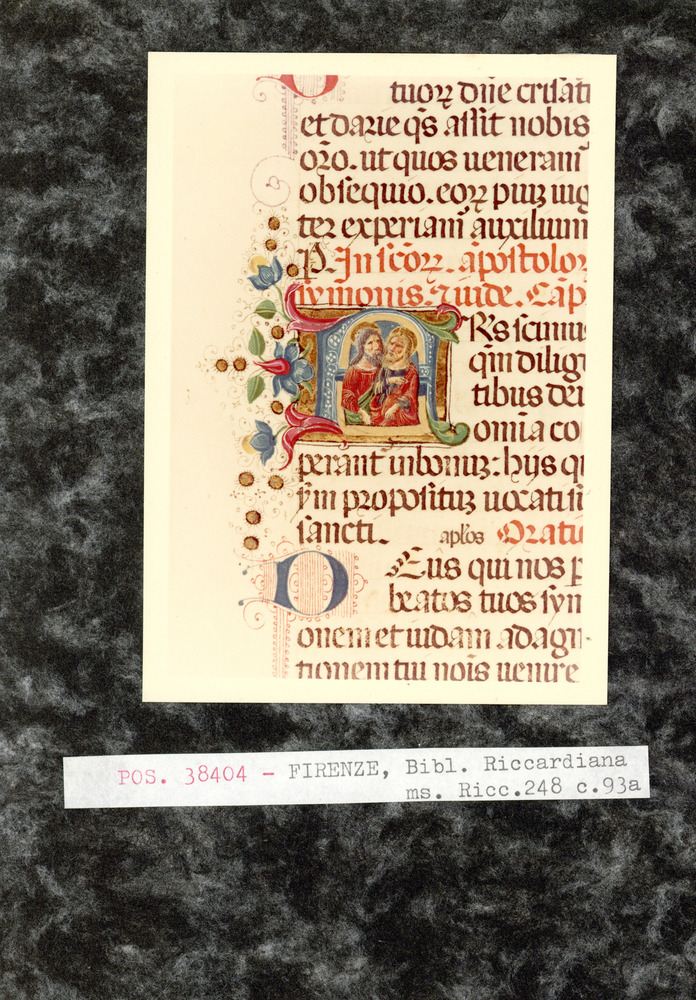 tuoꝝ dn̄e crisati
et darie q̄s assit nobis
or̄o. ut quos ueneram̄
obsequio. eoꝝ piuꝫ iug
ter experiam̄ auxilium
In sc̄oꝝ. apostoloꝝ
symonis. ⁊ iude. Cap
Rr̄s scimus
qm̄ dilig
tibus deū
omīa co
perant in bonuꝫ: hys qi
propositūꝫ uocati
sancti. apl̓os Oratio
Eus qui nos p
beatos tuos sym
onem et iudam. ad agn
tionem tui nois uenire
POS. 38404 - FIRENZE, Bibl. Riccardiana
ms. Ricc.248 c.93a